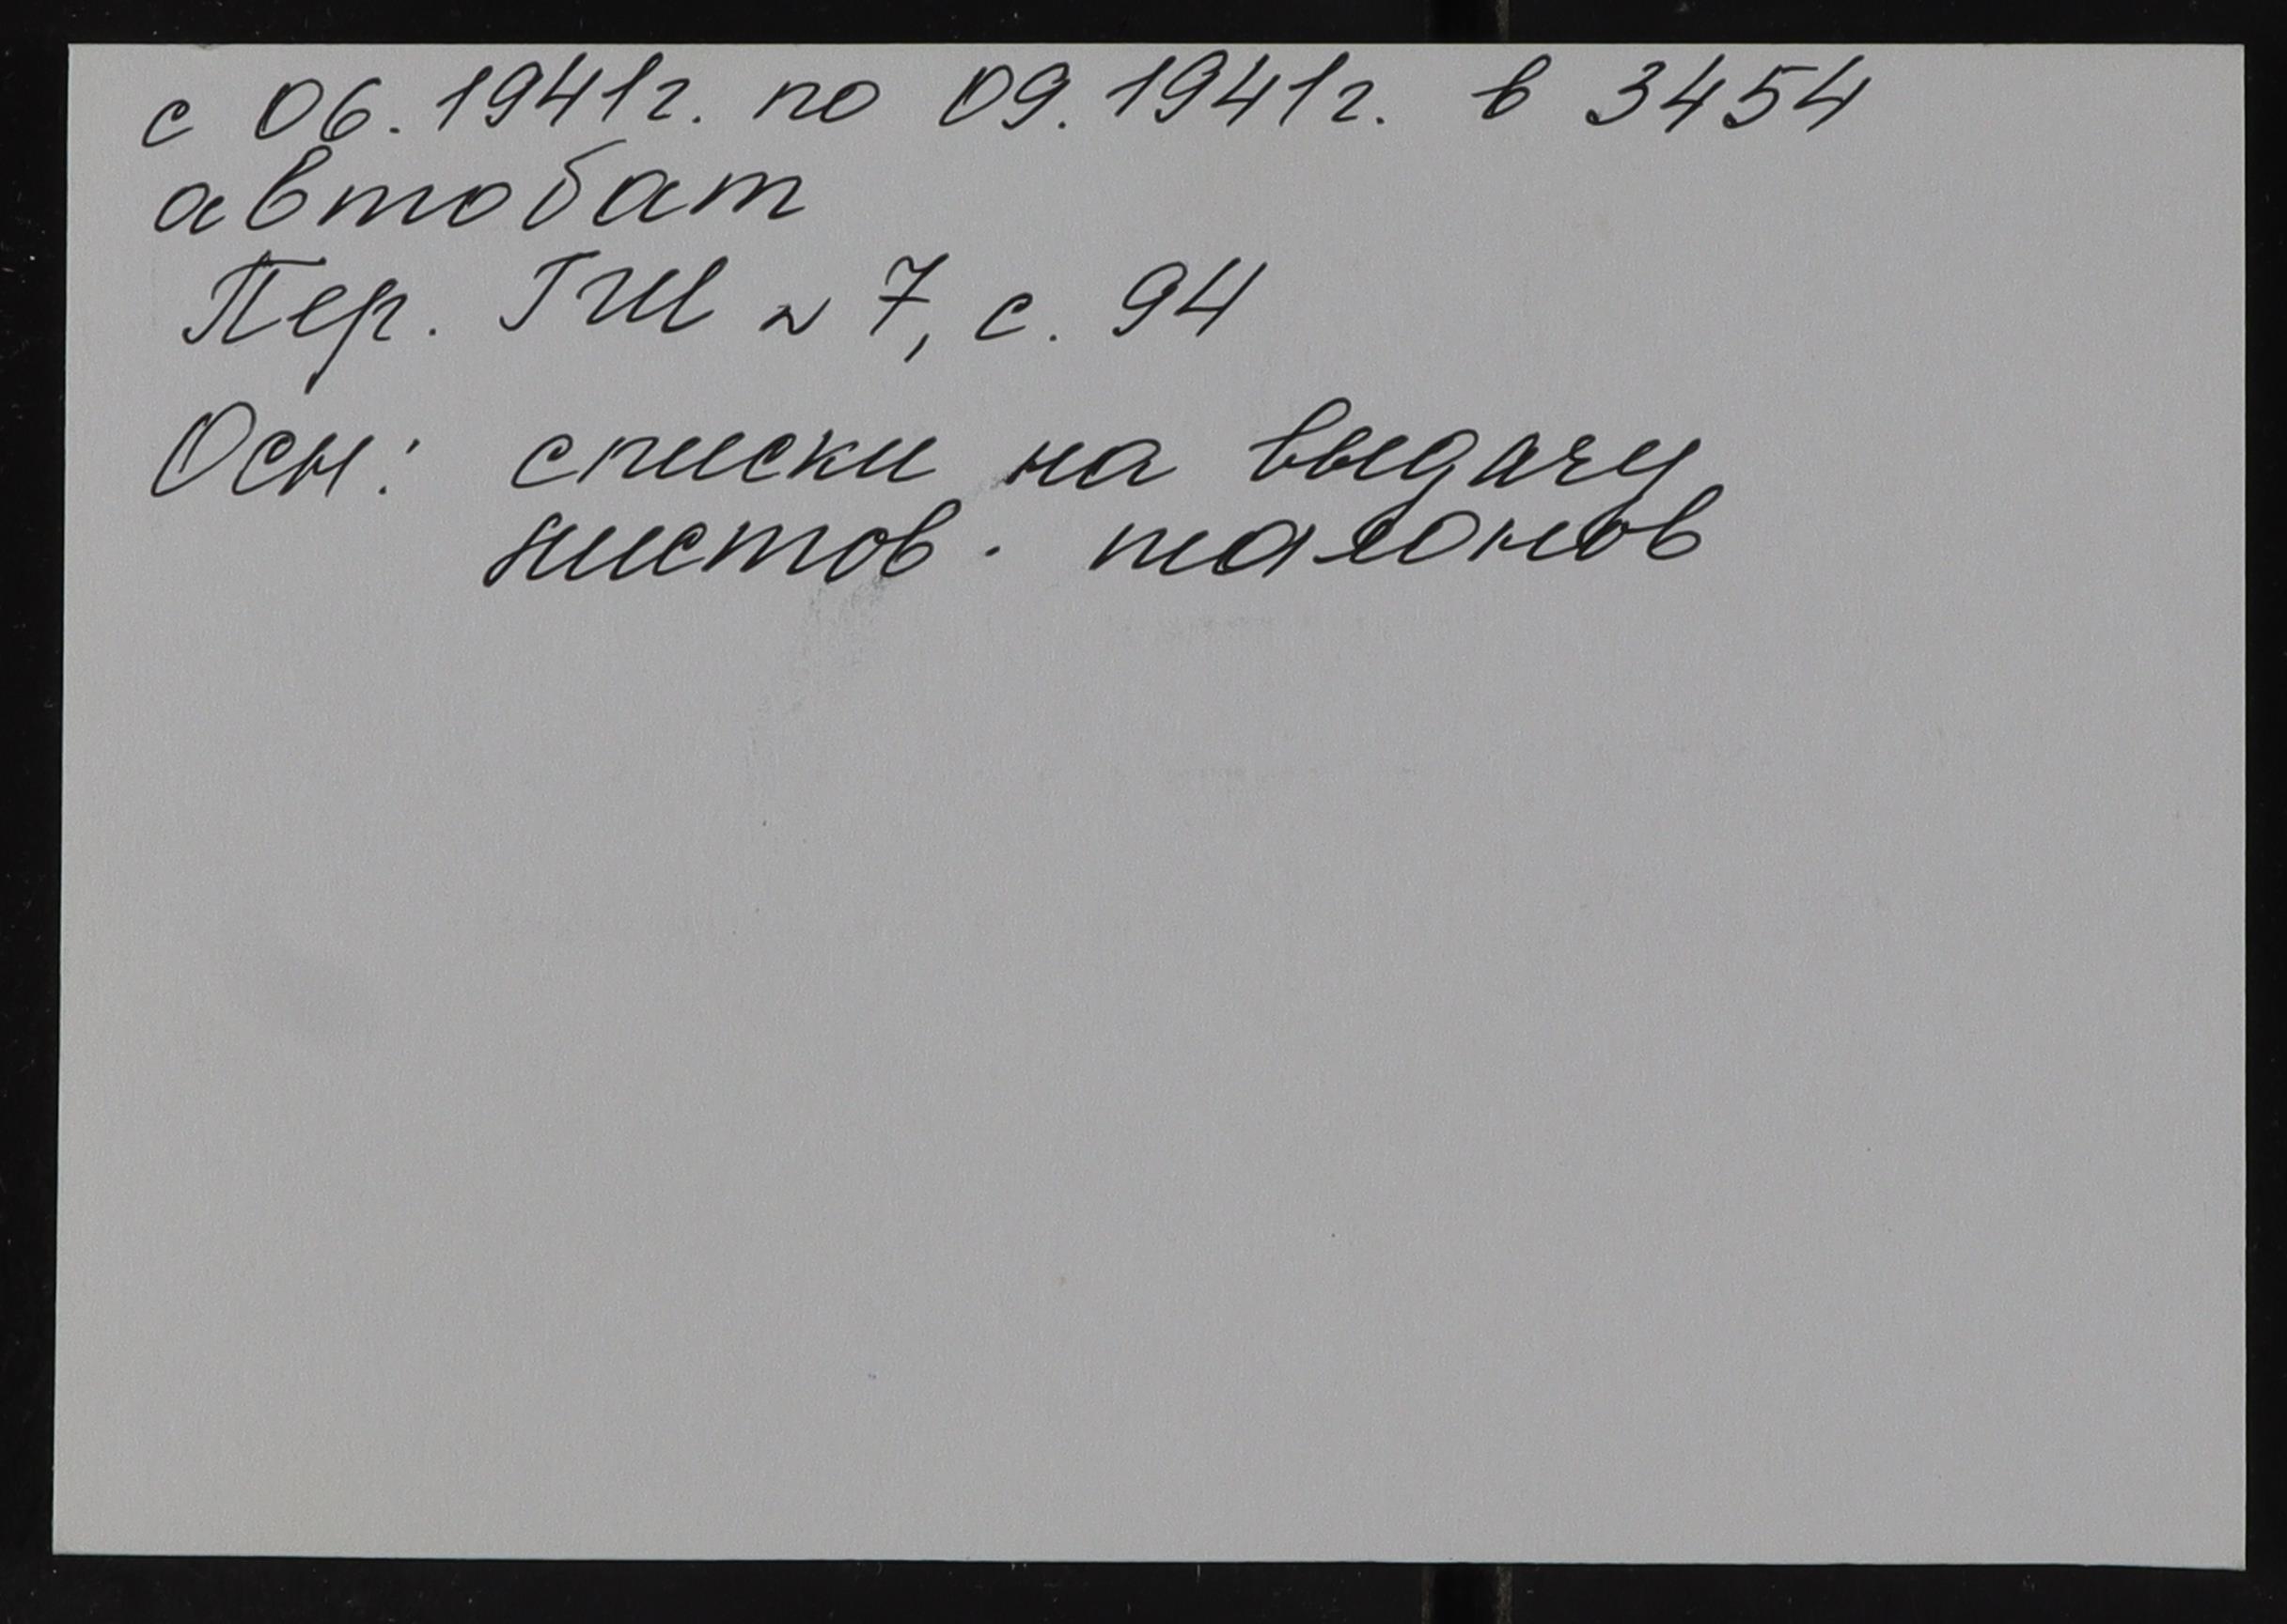 с 06.1941г. по 09.1941г. в 3454
автобат
Пер. ГШ № 7, с. 94
Осн: списки на выдачу
листов. талонов